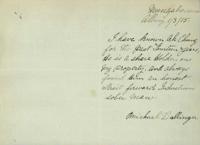 Albury 1/3/15.
I have known Ah Chung
for the past fourteen years,
He is a share holder on
my property, and always
found him an honest
strait forward industrious
sober man
Michael Dallinger